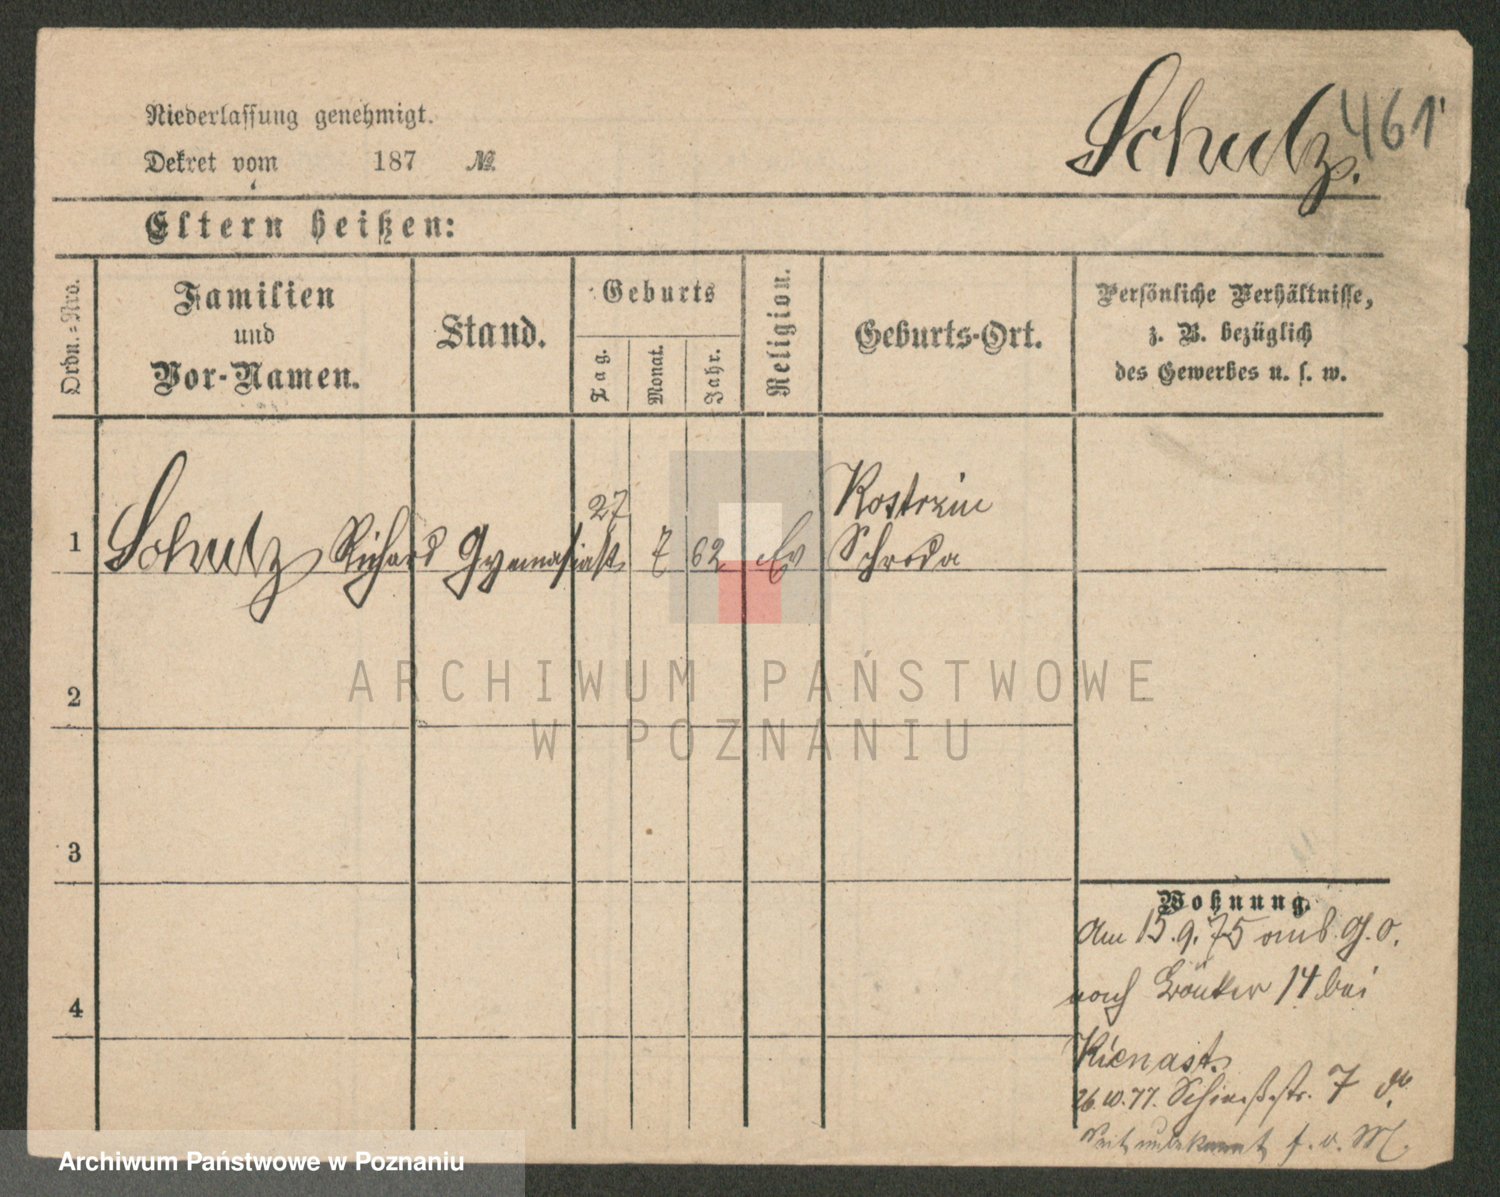 Niederlassung genehmigt.
Dekret vom 187 №
Schulz.
461
Eltern heißen:
Ordn.=Nro.
Familien
und
Vor-Namen.
Stand.
Geburts
Tag.
Monat.
Jahr.
Religion.
Geburts-Ort.
Persönliche Verhältnisse,
z. B. bezüglich
des Gewerbes u. s. w.
1
Schulz Richard
Gymnasiast
27
7
62
Ev
Kostrzin
Schroda
2
3
4
Wohnung.
Am 15.9.75 G.O.
nach 14 bei
Kienast.
26.10.77. Schießstr. 7
unbekannt
ARCHIWUM PAŃSTWOWE
W POZNANIU
Archiwum Państwowe w Poznaniu